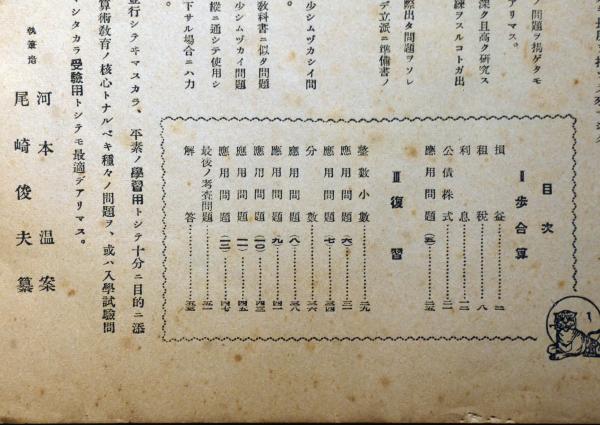 ノ問題ヲ揚ゲタモ
アリマス。
深ク且高ク研究ス
練ヲスルコトガ出
際出タ問題ヲソレ
デ立派ニ準備書ノ
少シムヅカシイ問
教科書ニ似タ問題
少シムヅカイ問題
縱ニ通シテ使用シ
下サル場合ニハ力
並行シテヰマスカラ、平素ノ學習用トシテ十分ニ目的ニ添
算術教育ノ核心トナルベキ種々ノ問題ヲ、或ハ入學試驗問
マシタカラ受驗用トシテモ最適デアリマス。
執筆者
河本温案
尾崎俊夫纂
目次
Ⅱ歩合算
損益
租税……八
利息……一二
公債株式……二一
應用問題(五)……二五
Ⅲ復習
整數小數……二九
應用問題(六)……三一
應用問題(七)……三四
分數……三六
應用問題(八)……三八
應用問題(九)……四一
應用問題(一〇)……四三
應用問題(一一)……四五
應用問題(一二)……四七
最後ノ考査問題……五一
解答……五三